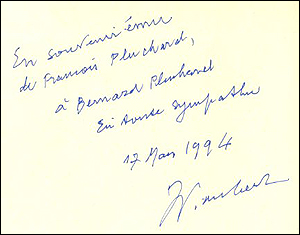 En souvenir ému
de François Pluchart,
à Bernard
En toute sympathie
17 Mars 1994